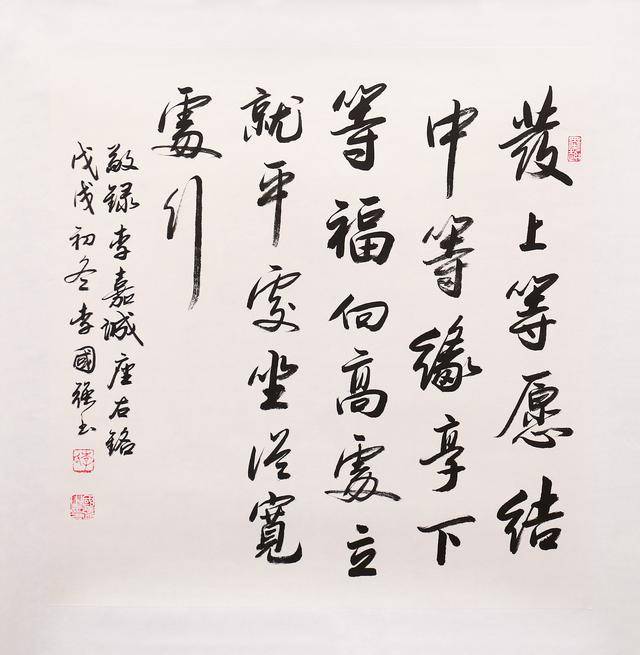 發上等愿结
中等緣享下
等福向高處立
就平處坐從寬
處行
敬録李嘉诚座右銘
戊戌初冬李國强书